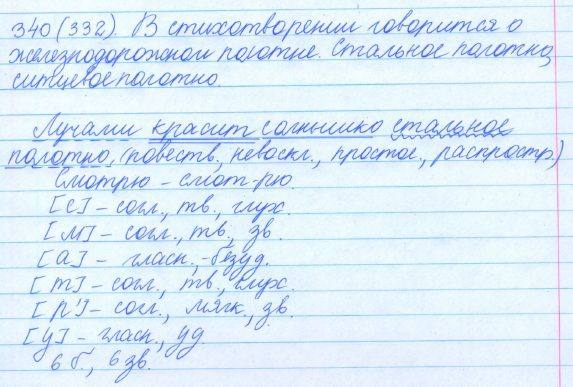 340 (332). В стихотворении говорится о
железнодорожном полотне. Стальное полотно,
ситцевое полотно.
Лучами красит солнышко стальное
полотно. (повеств., невоскл., простое, распростр.)
Смотрю – смот-рю.
[с] – согл., тв., глух.
[м] – согл., тв., зв.
[а] – гласн., безуд.
[т] – согл., тв., глух.
[р'] – согл., мягк., зв.
[у] – гласн., уд.
6 б., 6 зв.